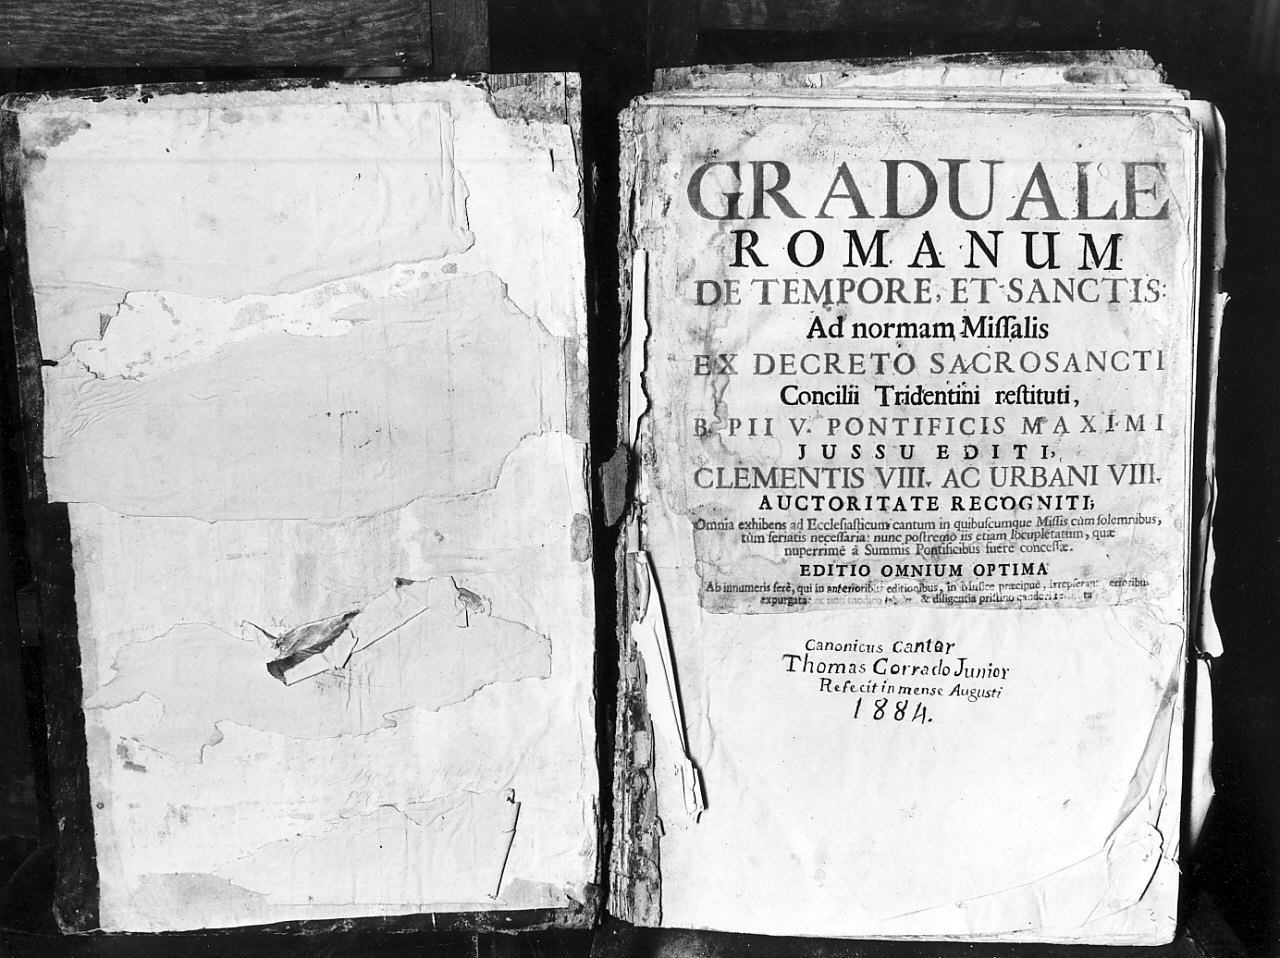 GRADUALE
ROMANUM
DE TEMPORE, ET SANCTIS:
Ad normam Miſſalis
EX DECRETO SACROSANCTI
Concilii Tridentini reſtituti,
B. PII V. PONTIFICIS MAXIMI
JUSSU EDITI,
CLEMENTIS VIII. AC URBANI VIII.
AUCTORITATE RECOGNITI;
Omnia exhibens ad Eccleſiaſticum cantum in quibuſcumque Miſſis cùm ſolemnibus,
tùm feriatis neceſſaria: nunc poſtremò iis etiam locupletatum, quæ
nuperrimè à Summis Pontificibus fuere conceſſæ.
EDITIO OMNIUM OPTIMA
Ab innumeris ferè, qui in anterioribus editionibus, in Muſice præcipuè, irrepſerant erroribus
expurgata & diligentia priſtino
Canonicus Cantor
Thomas Corrado Junior
Refecit in mense Augusti
1884.